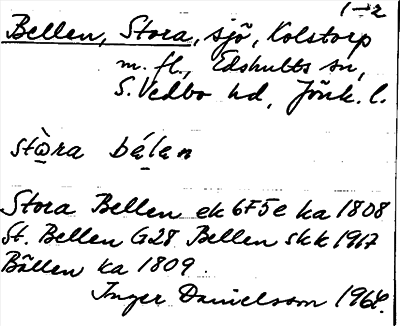 1→2
Bellen, Stora, sjö, Kolstorp
m. fl., Edshults sn,
S. Vedbo hd, Jönk. l.
stò̱ra bá̱lan
Stora Bellen ek 6F5e ka 1808
St. Bellen G28 Bellen skk 1967
Bällen ka 1809.
Inger Danielsson 1964.